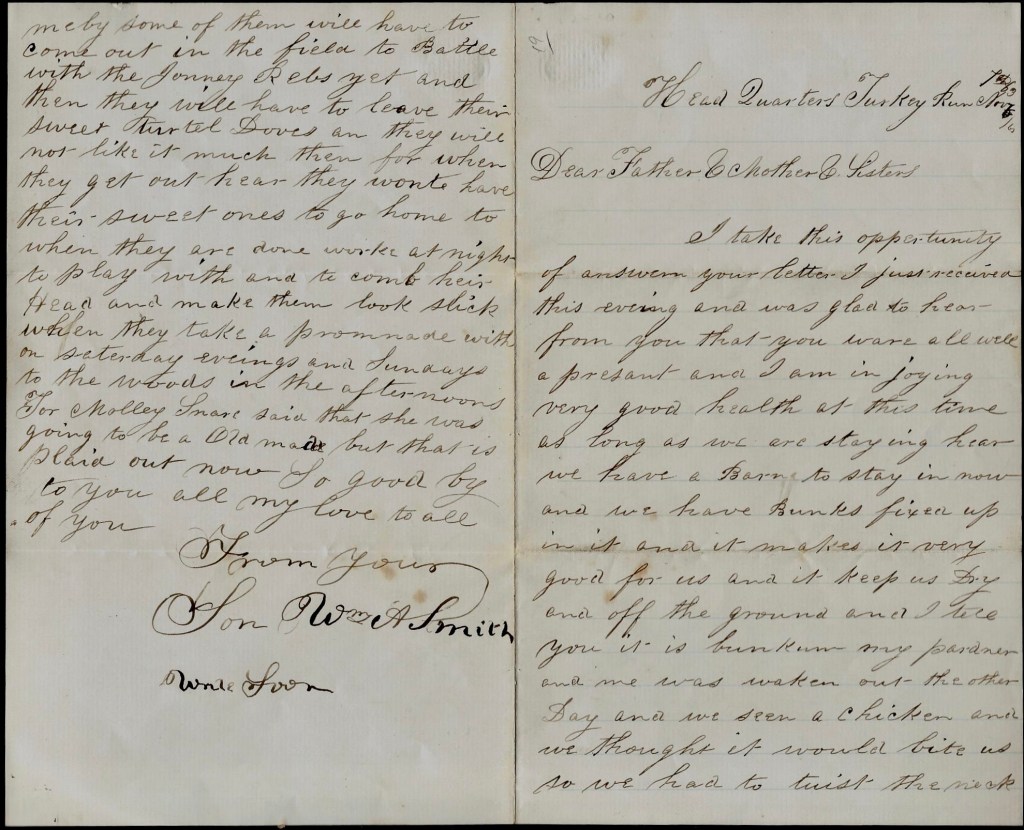 19
Head Quarters Turkey Run Nov
Dear Father & Mother & Sisters
I take this opportunity
of answern your letter I just received
this eveing and was glad to hear
from you that you ware all well
a presant and I am in joying
very good health at this time
as long as we are staying hear
we have a Barn to stay in now
and we have Bunks fixed up
in it and it makes it very
good for us and it keep us Dry
and off the ground and I tell
you it is bunkum my pardner
and me was waken out the other
Day and we seen a chicken and
we thought it would bite us
so we had to twist the neck
meby some of them will have to
come out in the field to Battle
with the Jonney Rebs yet and
then they will have to leave their
sweet turtel Doves an they will
not like it much then for when
they get out hear they wonte have
their sweet ones to go home to
when they are done worke at night
to play with and to comb heir
Head and make them look slick
when they take a promnade with
on saterday eveings and Sundays
to the woods in the afternoons
For Molley Snare said that she was
going to be a Old made but that is
plaid out now So good by
to you all my love to all
of you
From your
Son Wm A Smith
Write Soon